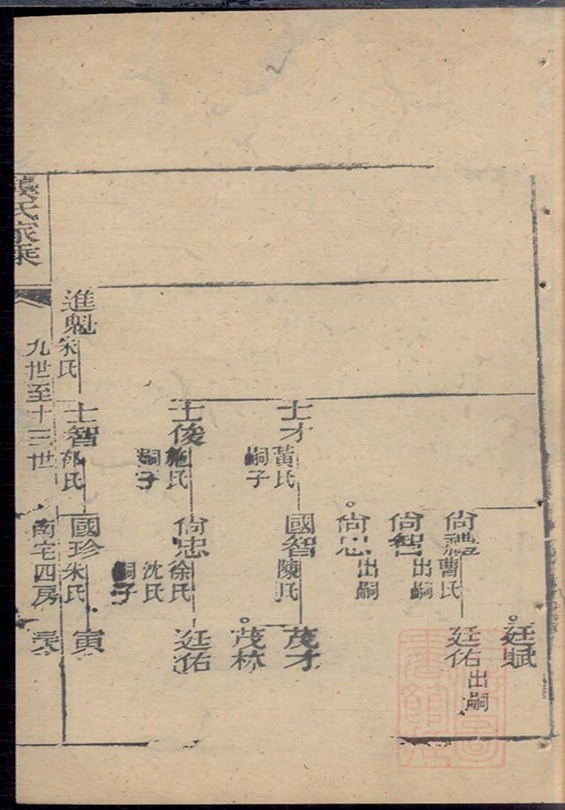 廷賦
尙禮 曹氏
廷佑 出嗣
尙智 出嗣
尙忠 出嗣
士才 黃氏
嗣子
國智 陳氏
茂才
茂林
士俊 施氏
嗣子
尙忠 徐氏
沈氏
嗣子
廷佑
進魁 朱氏
士智
國珍 朱氏
寅
氏家乘
九世至十三世
南宅四房